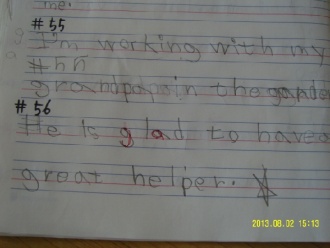 me.
#55
I'm working with my
#55
grandpapa in the garde
#56
He is glad to have a
great helper.
2013.08.02 15:13